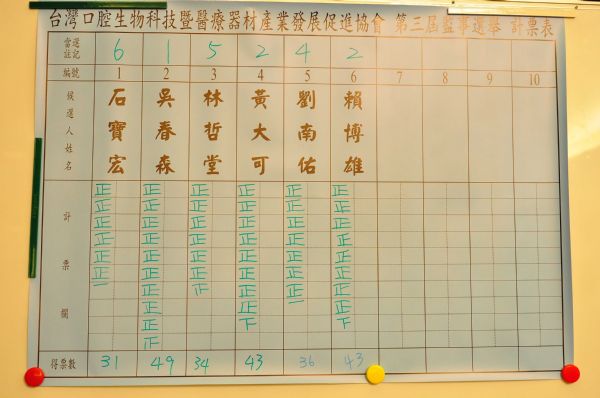 台灣口腔生物科技暨醫療器材產業發展促進協會 第三屆監事選舉 計票表
當選註記 6 1 5 2 4 2
編號 1 2 3 4 5 6 7 8 9 10
候選人姓名 石寶宏 吳春森 林哲堂 黃大可 劉南佑 賴博雄
計票欄
正 正 正 正 正 正
正 正 正 正 正 正
正 正 正 正 正 正
正 正 正 正 正 正
正 正 正 正 正 正
正 正 正 正 正 正
一 正 正 正 正 正
正 正 一 正
正 下 下
正
得票數 31 49 34 43 36 43